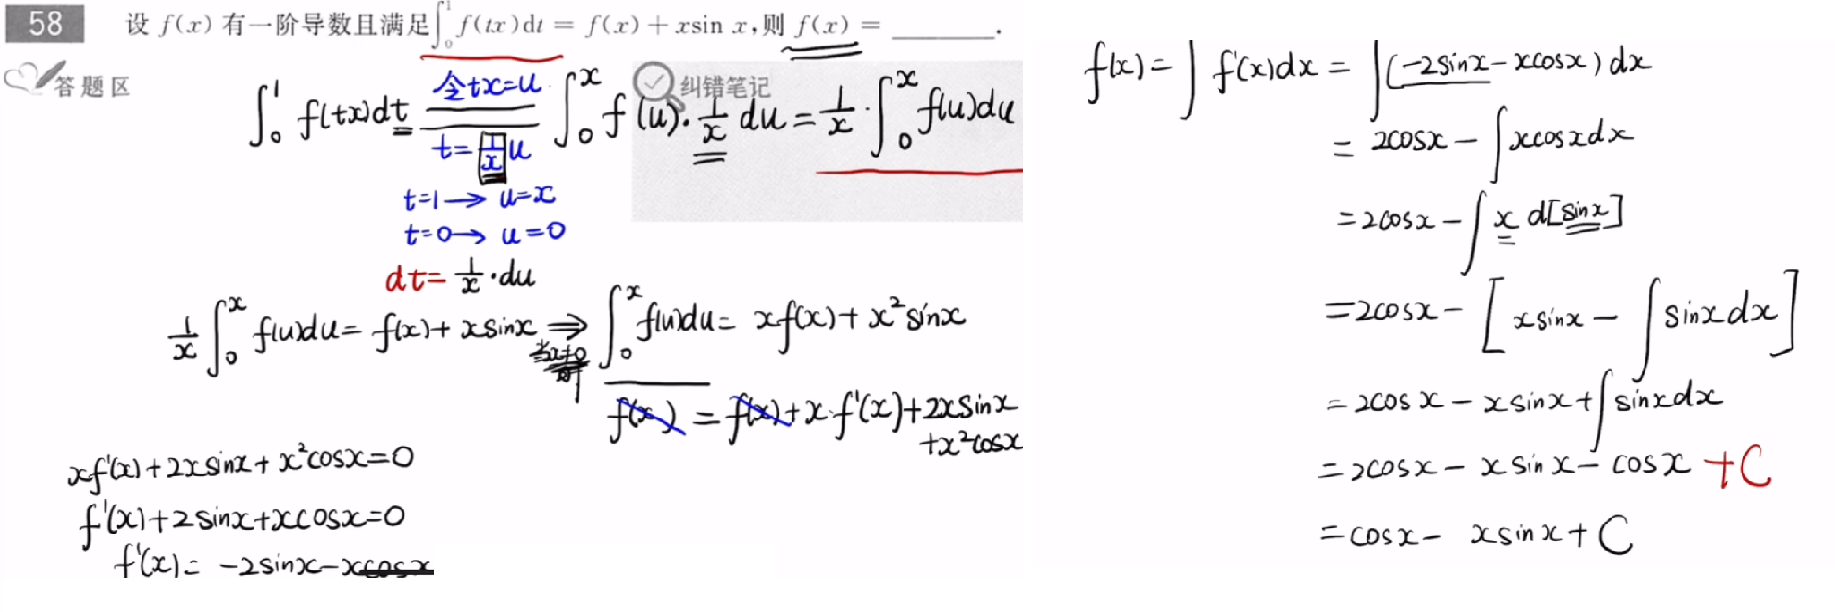 58 设 f(x) 有一阶导数且满足∫₀¹ f(tx)dt = f(x) + xsin x,则 f(x) = ________.
答题区
纠错笔记
∫₀¹ f(tx)dt 令tx=u ∫₀ˣ f(u)·1/x du = 1/x · ∫₀ˣ f(u)du
t=1/x u
t=1→ u=x
t=0→ u=0
dt= 1/x ·du
1/x ∫₀ˣ f(u)du = f(x)+ x sinx ⇒ ∫₀ˣ f(u)du = xf(x)+ x²sinx
f(x) = f(x)+x·f'(x)+2xsinx
+x²cosx
xf'(x)+2xsinx+x²cosx=0
f'(x)+2sinx+xcosx=0
f'(x)= -2sinx-xcosx
f(x)= ∫ f'(x)dx = ∫(-2sinx-xcosx)dx
= 2cosx - ∫xcosxdx
=2cosx - ∫ x d[sinx]
=2cosx - [xsinx - ∫sinxdx]
=2cosx - xsinx+∫sinxdx
=2cosx - xsinx - cosx +C
=cosx - xsinx+C